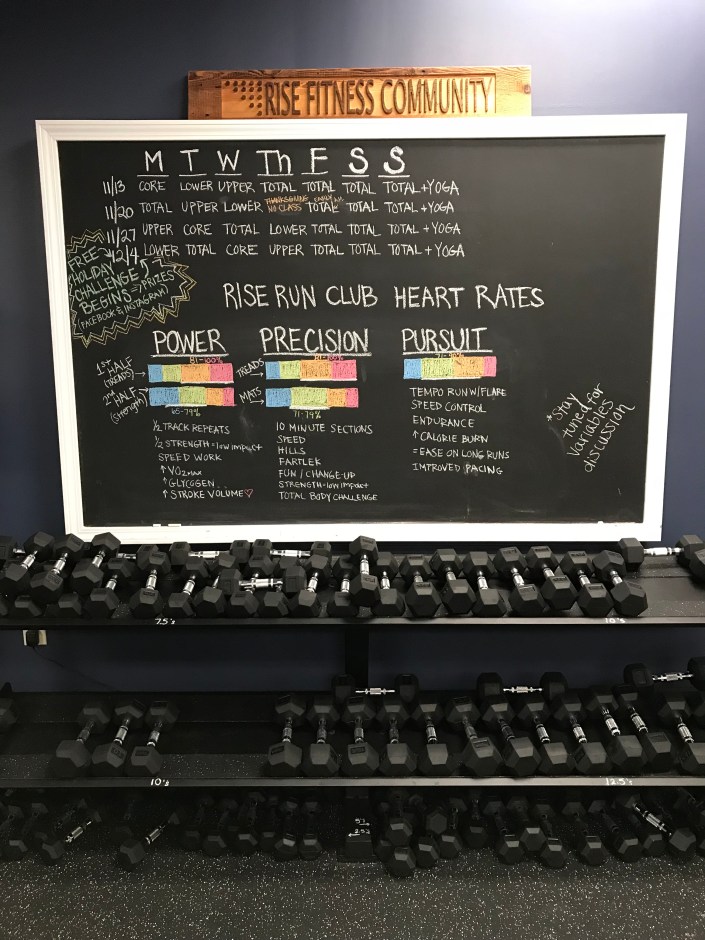 RISE FITNESS COMMUNITY
M T W Th F S S
11/13 CORE LOWER UPPER TOTAL TOTAL TOTAL TOTAL + YOGA
11/20 TOTAL UPPER LOWER THANKSGIVING NO CLASS TOTAL TOTAL TOTAL + YOGA
11/27 UPPER CORE TOTAL LOWER TOTAL TOTAL TOTAL + YOGA
12/4 LOWER TOTAL CORE UPPER TOTAL TOTAL TOTAL + YOGA
FREE
HOLIDAY
CHALLENGE
BEGINS → PRIZES
FACEBOOK & INSTAGRAM
RISE RUN CLUB HEART RATES
POWER
81-100%
1st HALF
(TREADS)
2nd HALF
(strength)
65-79%
1/2 TRACK REPEATS
1/2 STRENGTH = low impact
SPEED WORK
↑ VO2max
↑ GLYCOGEN
↑ STROKE VOLUME ♡
PRECISION
81-100%
TREADS →
MATS →
71-79%
10 MINUTE SECTIONS
SPEED
HILLS
FARTLEK
FUN / CHANGE-UP
STRENGTH = low impact
TOTAL BODY CHALLENGE
PURSUIT
TEMPO RUN W/FLARE
SPEED CONTROL
ENDURANCE
↑ CALORIE BURN
= EASE ON LONG RUNS
IMPROVED PACING
* Stay
tuned for
Variables
discussion
7.5's
10's
10's
12.5's
5's